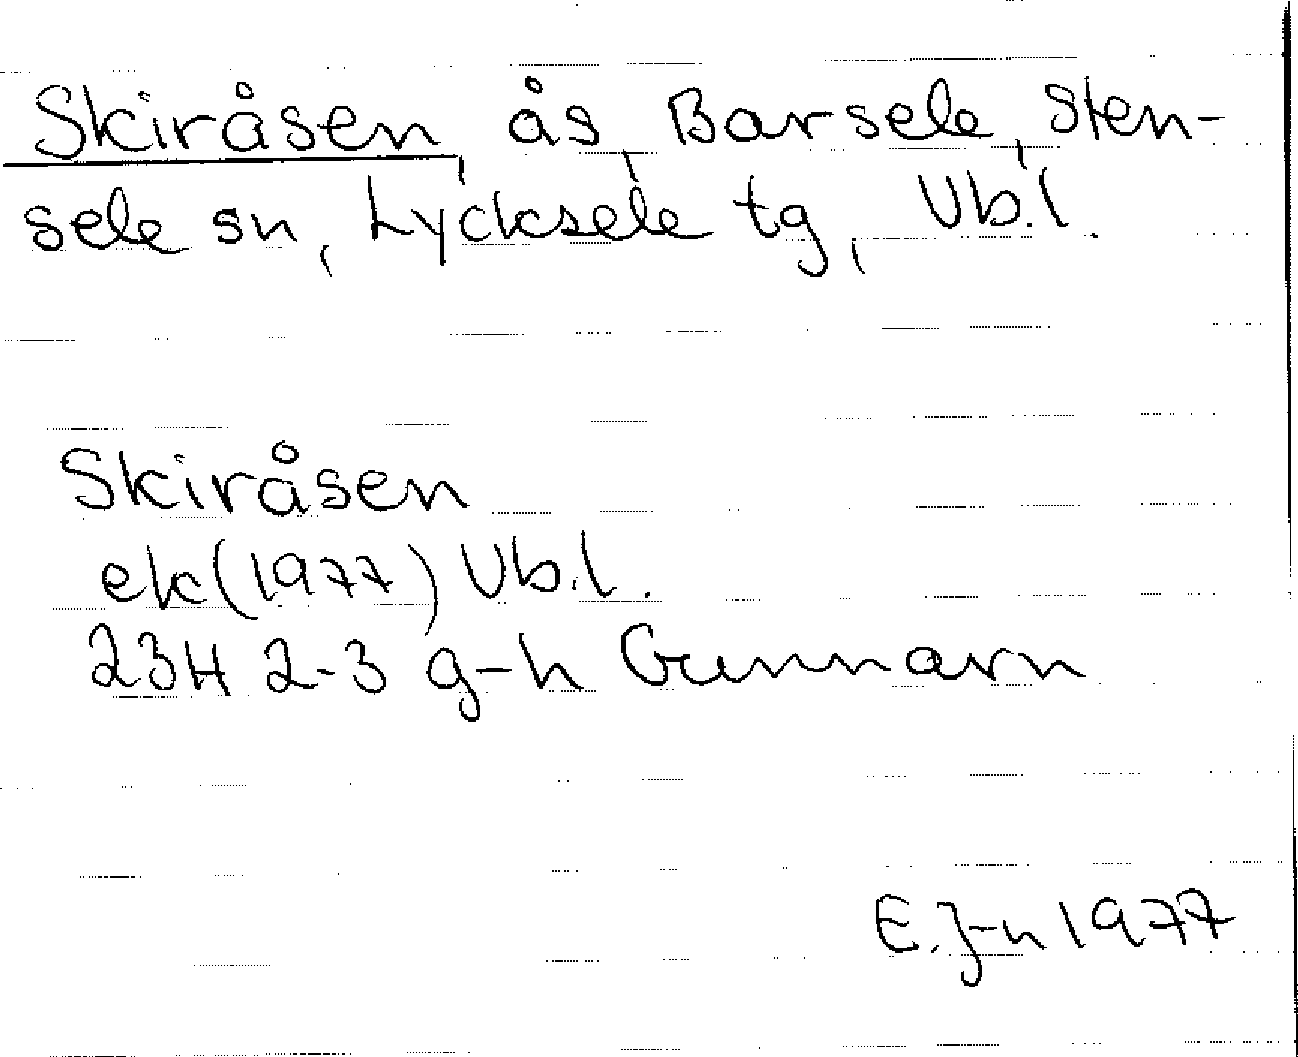 Skiråsen, ås, Barsele, Sten-
sele sn, Lycksele tg, Vb.l.
Skiråsen
ek (1977) Vb.l.
23H 2-3 g-h Gunnarn
E.J-n 1977